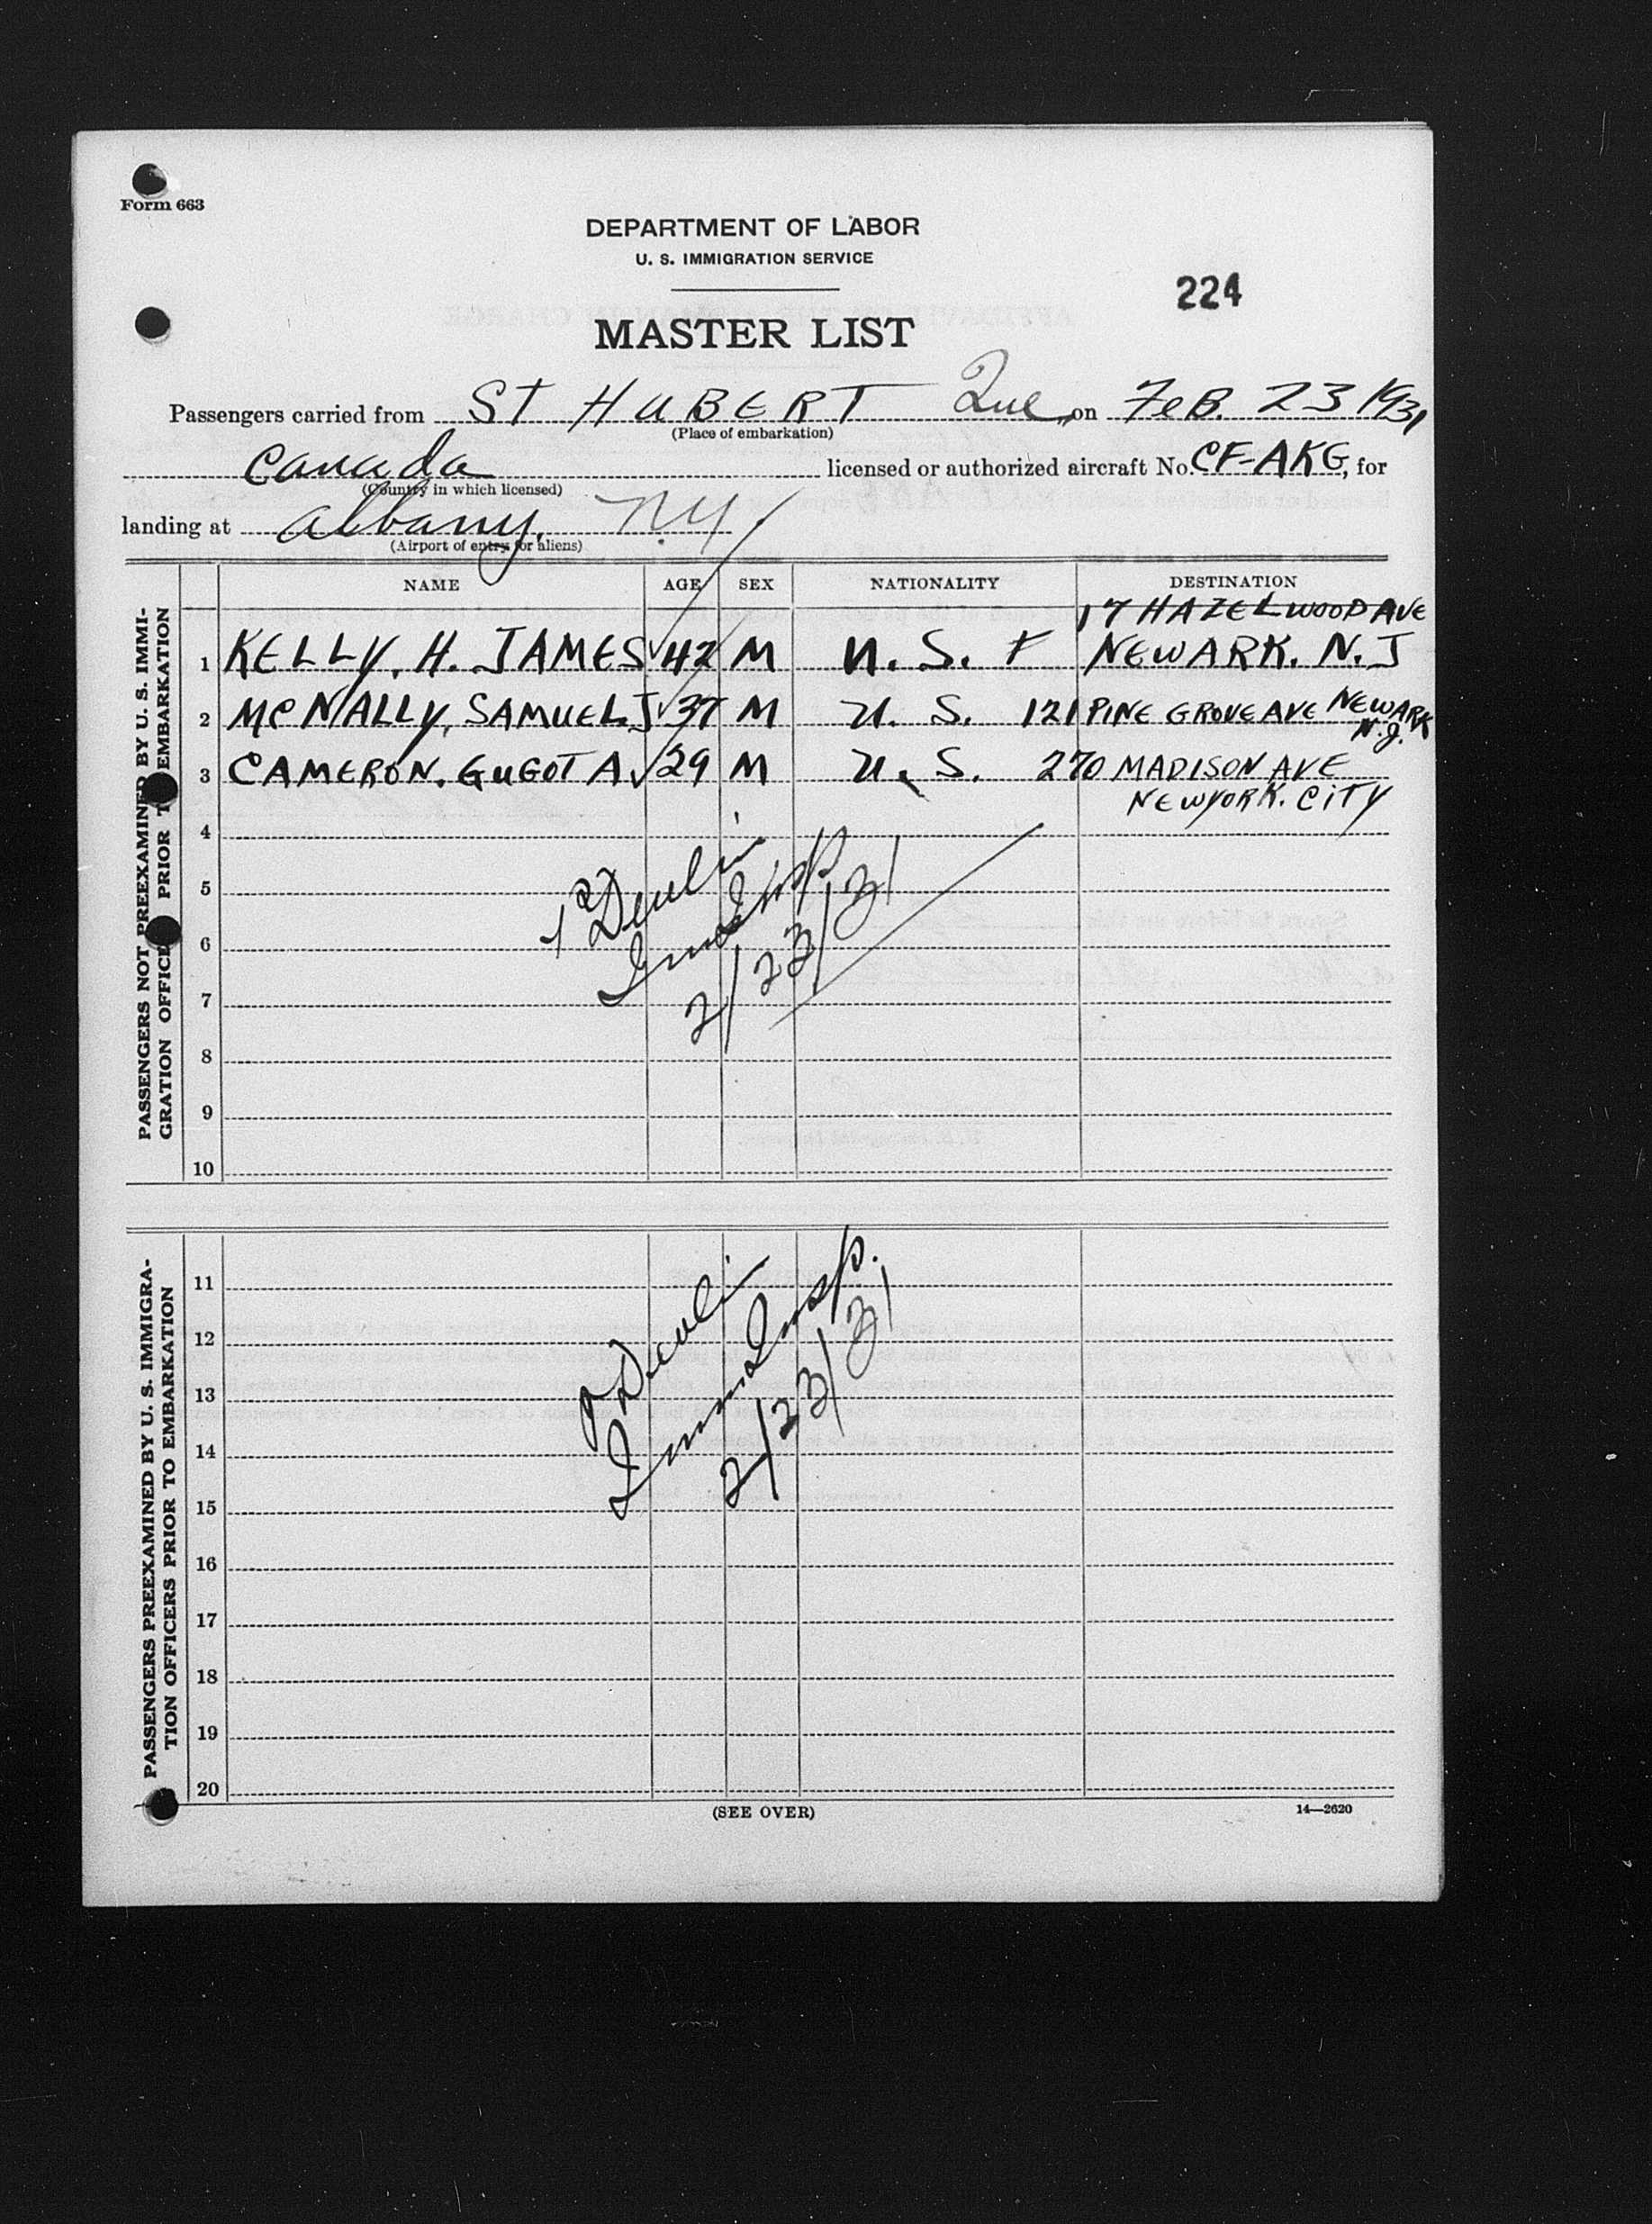 Form 663
DEPARTMENT OF LABOR
U. S. IMMIGRATION SERVICE
224
MASTER LIST
Passengers carried from ST HUBERT Que, on FeB. 23 1931
(Place of embarkation)
Canada licensed or authorized aircraft No. CF-AKG, for
(Country in which licensed)
landing at Albany, NY.
(Airport of entry for aliens)
NAME AGE SEX NATIONALITY DESTINATION
PASSENGERS NOT PREEXAMINED BY U. S. IMMI-
GRATION OFFICE PRIOR T EMBARKATION
17 HAZELWOOD AVE
1 KELLY. H. JAMES 42 M U. S. NEWARK. N. J
2 McNALLY, SAMUEL J 37 M U. S. 121 PINE GROVE AVE NEWARK
N.J.
3 CAMERON. GUGOT A 29 M U. S. 270 MADISON AVE
NEWYORK. CiTY
4
5
6
7
8
9
10
Devlin
Imm Insp
2/23/31
PASSENGERS PREEXAMINED BY U. S. IMMIGRA-
TION OFFICERS PRIOR TO EMBARKATION
11
12
13
14
15
16
17
18
19
20
Devlin
Imm Insp.
2/23/31
(SEE OVER)
14—2620